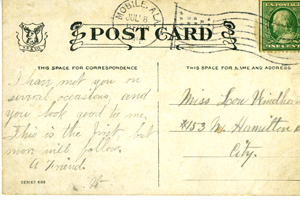 MOBILE, ALA.
JUL 8
POST CARD
THIS SPACE FOR CORRESPONDENCE
THIS SPACE FOR NAME AND ADDRESS
I have met you on
several occasions and
you look good to me.
This is the first but
more will follow.
A Friend
Miss Lou Windham
#153 N. Hamilton
City.
SERIES